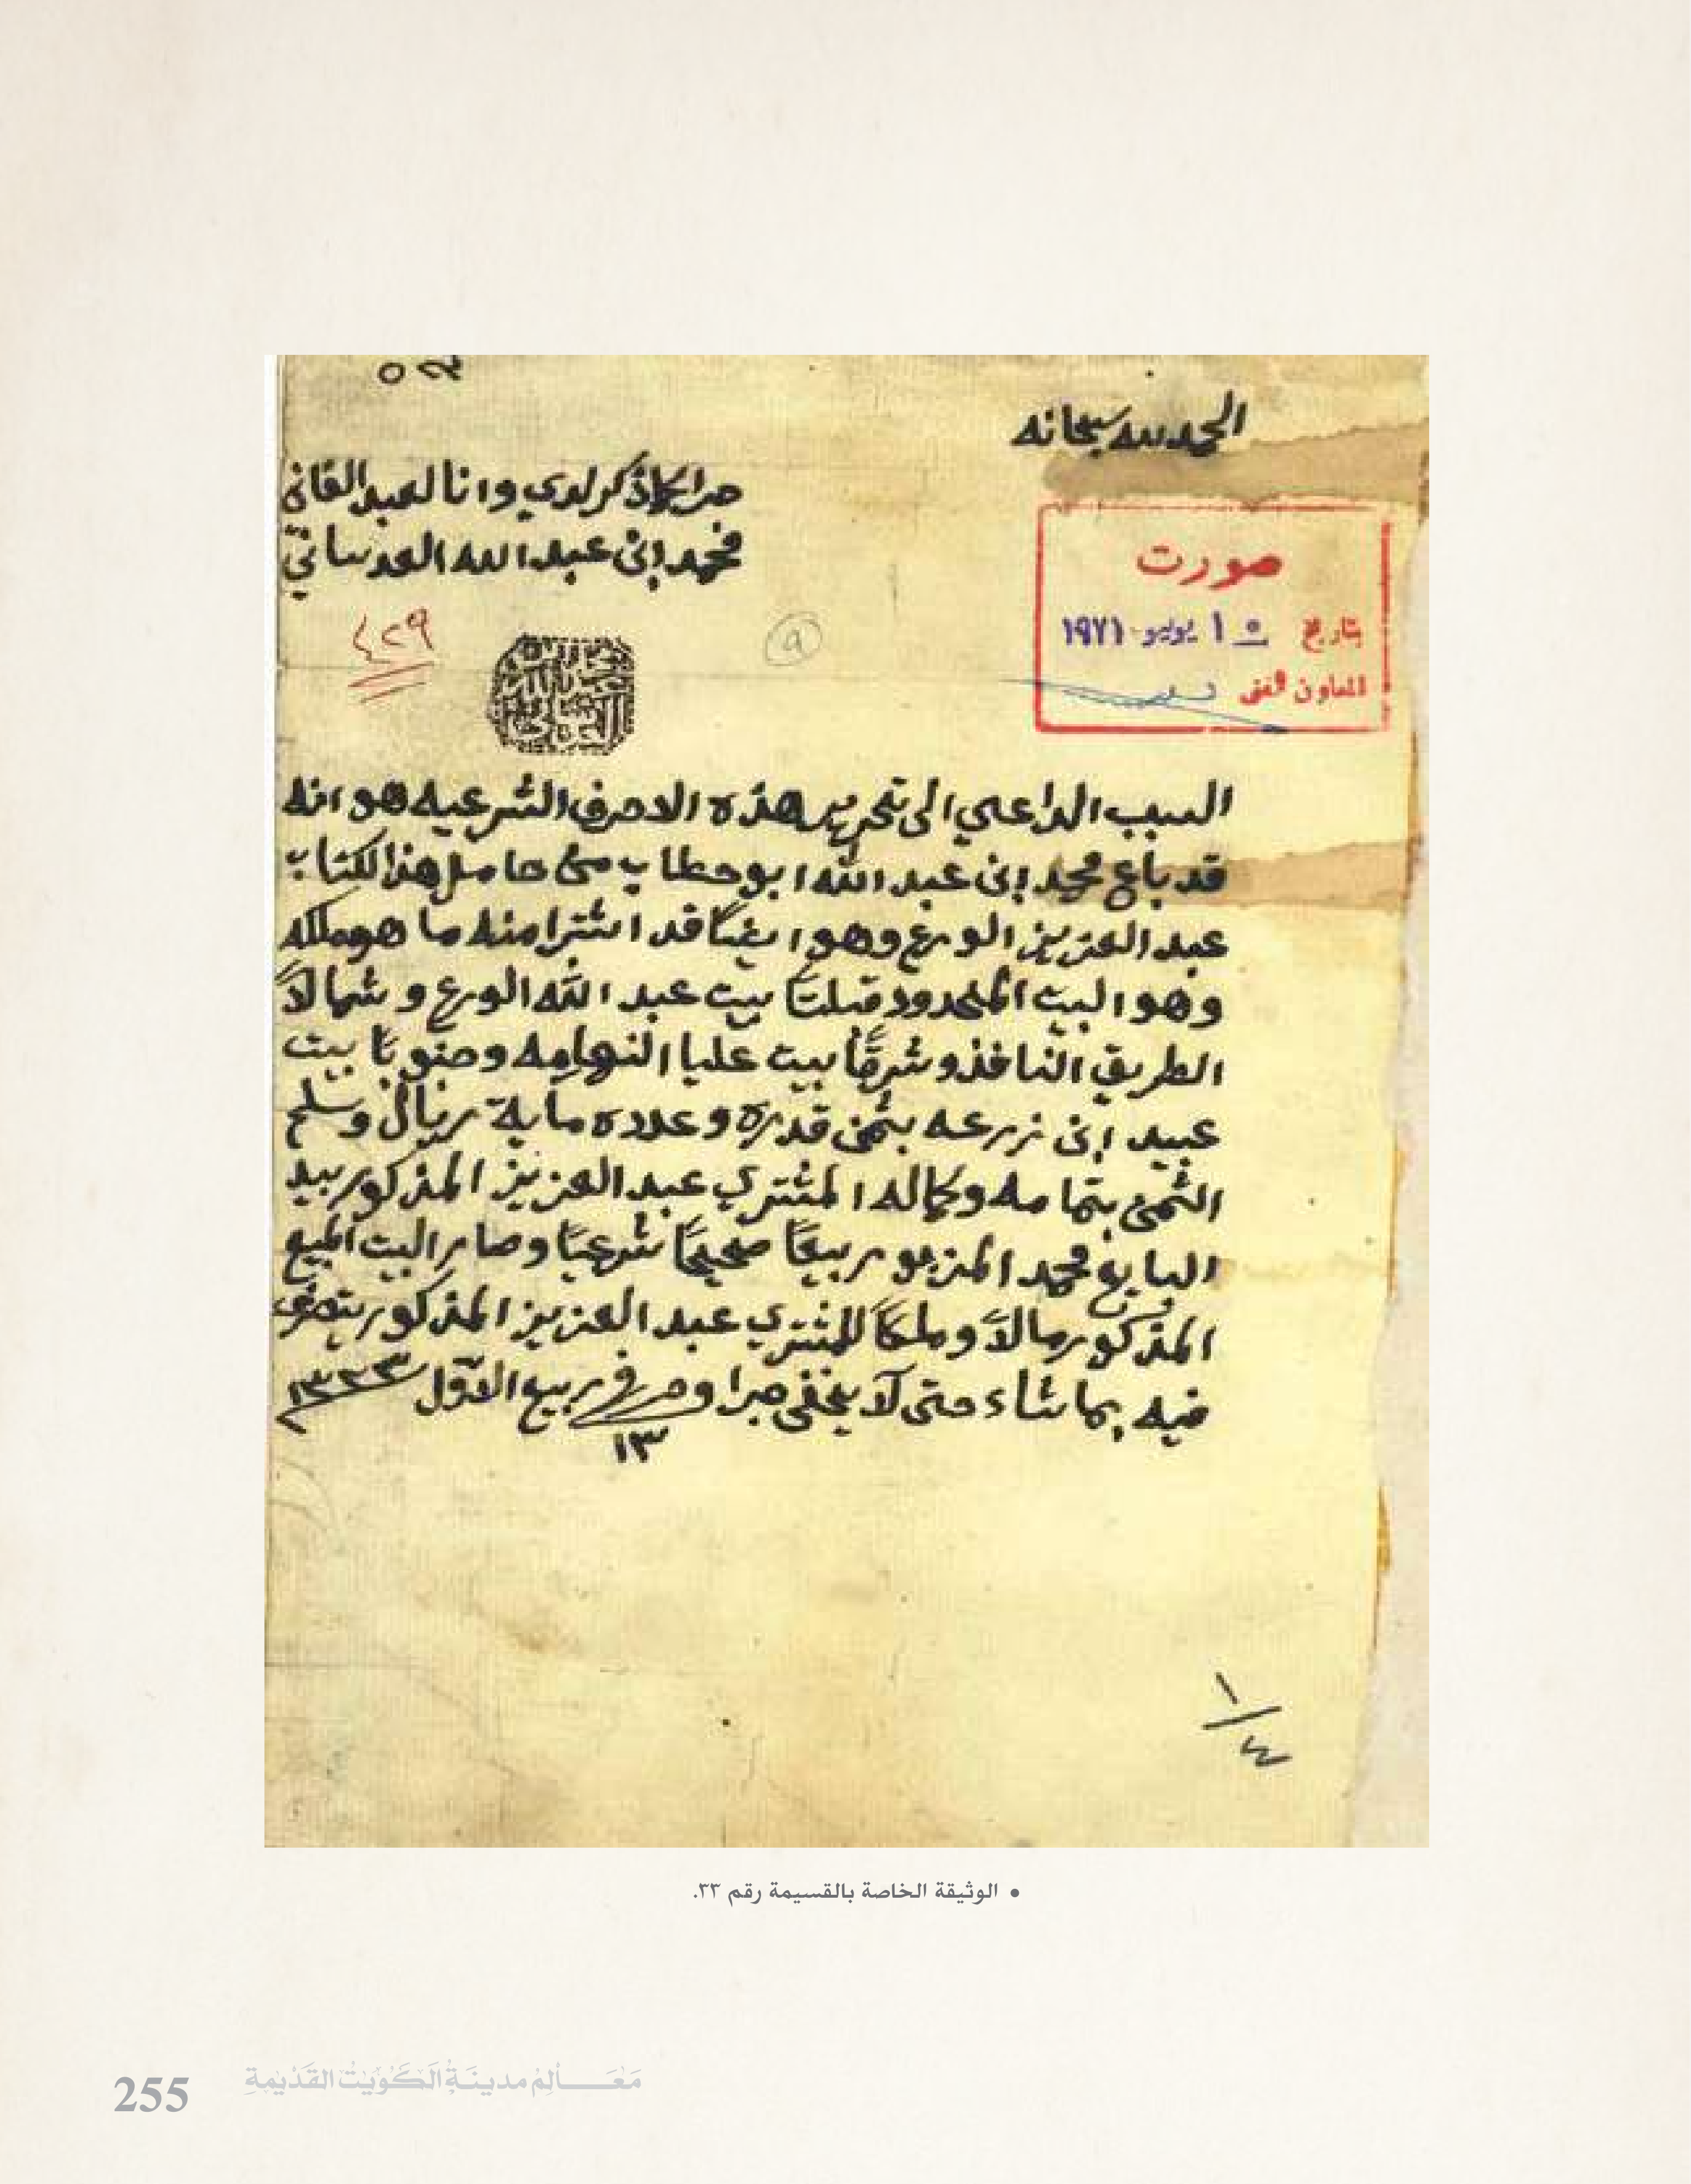 ٥٩
الحمد لله سبحانه
جرا كما ذكر لدي وانا العبد الفاني
محمد ابن عبد الله العدساني
٤٢٩
٩
صورت
بتاريخ ١٥ يوليو ١٩٧١
المعاون الفني
السبب الداعي الى تحرير هذه الاحرف الشرعيه هو انه
قد باع محمد ابن عبد الله ابو حطاب من حامل هذا لكتاب
عبد العزيز الورع وهو ايضًا قد اشترا منه ما هو ملكه
وهو البيت المحدود قبلتًا بيت عبد الله الورع وشمالًا
الطريق النافذ وشرقًا بيت عليا النهامه وجنوبًا بيت
عبيد ابن زرعه بثمن قدره وعدده ماية ريال وسلم
الثمن بتمامه وكماله المشتري عبد العزيز المذكور بيد
البايع محمد المزبور بيعًا صحيحًا شرعيًا وصار البيت المبيع
المذكور مالًا وملكًا للمشتري عبد العزيز المذكور يتصرف
فيه بما شاء حتى لا يخفى جرا وحرر في ١٣ ربيع الاول ١٣٣٣
١/٤
• الوثيقة الخاصة بالقسيمة رقم ٣٣.
255 مَعَـــالِم مدينَةِ الكُوَيْت القَدْيمةِ